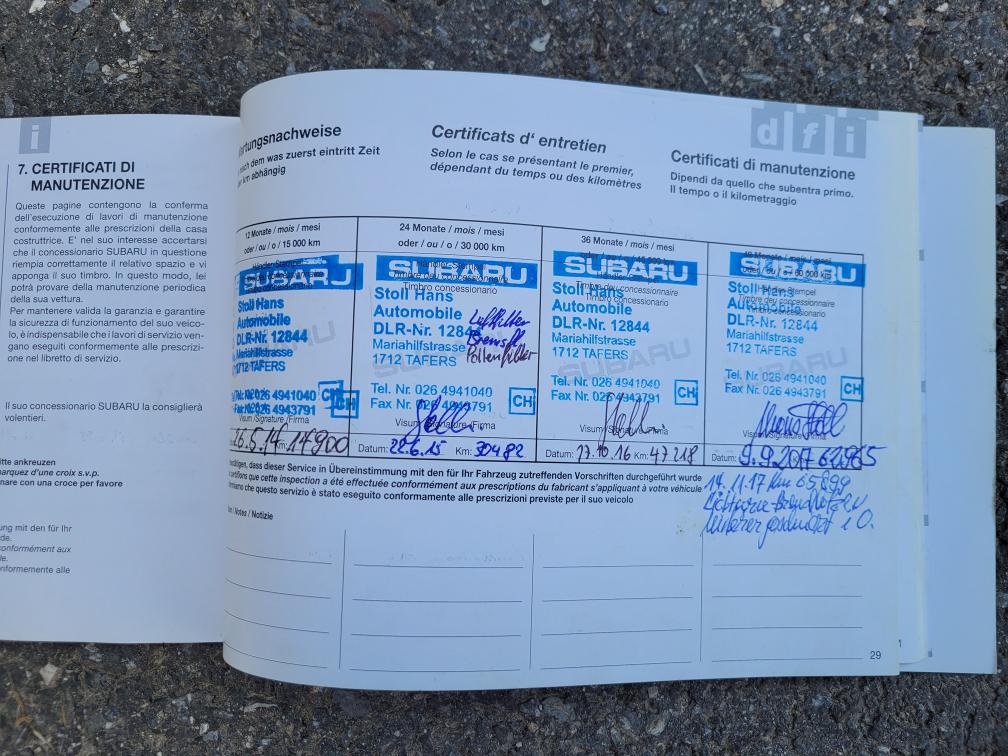 7. CERTIFICATI DI
MANUTENZIONE
Queste pagine contengono la conferma
dell'esecuzione di lavori di manutenzione
conformemente alle prescrizioni della casa
costruttrice. E' nel suo interesse accertarsi
che il concessionario SUBARU in questione
riempia correttamente il relativo spazio e vi
apponga il suo timbro. In questo modo, lei
potrà provare della manutenzione periodica
della sua vettura.
Per mantenere valida la garanzia e garantire
la sicurezza di funzionamento del suo veico-
lo, è indispensabile che i lavori di servizio ven-
gano eseguiti conformemente alle prescrizio-
ni nel libretto di servizio.
Il suo concessionario SUBARU la consiglierà
volentieri.
itte ankreuzen
arquez d'une croix s.v.p.
nare con una croce per favore
ung mit den für Ihr
de.
conformément aux
le.
nformemente alle
d f i
rtungsnachweise
nach dem was zuerst eintritt Zeit
er km abhängig
Certificats d' entretien
Selon le cas se présentant le premier,
dépendant du temps ou des kilomètres
Certificati di manutenzione
Dipendi da quello che subentra primo.
Il tempo o il kilometraggio
12 Monate / mois / mesi
oder / ou / o / 15 000 km
SUBARU
Stoll Hans
Automobile
DLR-Nr. 12844
Mariahilfstrasse
1712 TAFERS
026 4941040
026 4943791
CH
Visum /Signature /Firma
26.5.14 Km: 14900
24 Monate / mois / mesi
oder / ou / o / 30 000 km
SUBARU
Händler-Stempel
Timbre du concessionnaire
Timbro concessionario
Stoll Hans
Automobile
DLR-Nr. 12844
Mariahilfstrasse
1712 TAFERS
Luftfilter
Bremsfl
Pollenfilter
Tel. Nr. 026 4941040
Fax Nr. 026 4943791
CH
Visum /Signature /Firma
Datum: 22.6.15 Km: 30482
36 Monate / mois / mesi
SUBARU
Timbre du concessionnaire
Timbro concessionario
Stoll Hans
Automobile
DLR-Nr. 12844
Mariahilfstrasse
1712 TAFERS
Tel. Nr. 026 4941040
Fax Nr. 026 4943791
CH
Visum /Signature /Firma
Datum: 17.10.16 Km: 47218
48 Monate / mois / mesi
oder / ou / o / 60 000 km
SUBARU
Händler-Stempel
Timbre du concessionnaire
Timbro concessionario
Stoll Hans
Automobile
DLR-Nr. 12844
Mariahilfstrasse
1712 TAFERS
Tel. Nr. 026 4941040
Fax Nr. 026 4943791
CH
Visum /Signature /Firma
Datum: 9.9.2017 62965
tätigen, dass dieser Service in Übereinstimmung mit den für Ihr Fahrzeug zutreffenden Vorschriften durchgeführt wurde
certifions que cette inspection a été effectuée conformément aux prescriptions du fabricant s'appliquant à votre véhicule
ermiamo che questo servizio è stato eseguito conformamente alle prescrizioni previste per il suo veicolo
14.11.17 Km 65899
i O.
en / Notes / Notizie
29